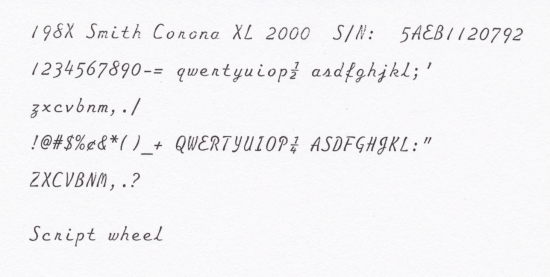 198X Smith Corona XL 2000 S/N: 5AEB1120792
1234567890-= qwertyuiop½ asdfghjkl;'
zxcvbnm,./
!@#$%¢&*()_+ QWERTYUIOP¼ ASDFGHJKL:"
ZXCVBNM,.?
Script wheel